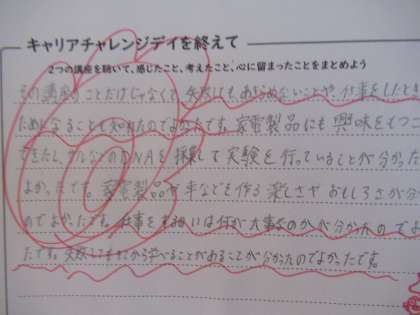 キャリアチャレンジデイを終えて
2つの講座を聴いて、感じたこと、考えたこと、心に留まったことをまとめよう
その講座のことだけじゃなくて、失敗してもあきらめないことや、仕事をしたとき
ためになることも知れたのでよかったです。家電製品にも興味をもつこ
できたし、のDNAを採集して実験を行っていることが分かった
よかったです。家電製品や車などを作る楽しさやおもしろさが分
のでよかったです。仕事をするには何が大事なのかが分かったのでよ
たです。失敗してもそこから学べることがあることが分かったのでよかったです。